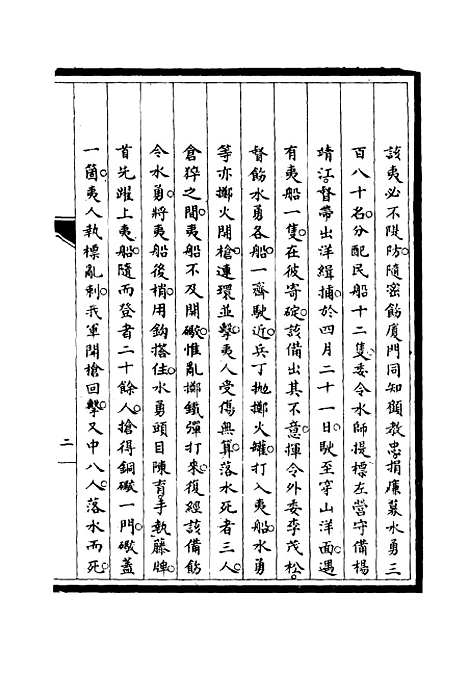 該夷必不陡防隨密飭廈門同知顧教忠捐廉募水勇三
百八十名分配民船十二隻委令水師提標左營守備楊
靖江督帶出洋緝捕於四月二十一日駛至穿山洋面遇
有夷船一隻在彼寄碇該備出其不意揮令外委李茂松
督飭水勇各船一齊駛近兵丁拋擲火罐打入夷船水勇
等亦擲火開槍連環並擊夷人受傷無算落水死者三人
倉猝之間夷船不及開礮惟亂擲鐵彈打來復經該備飭
令水勇將夷船後梢用鈎搭住水勇頭目陳育手執藤牌
首先躍上夷船隨而登者二十餘人搶得銅礮一門礮蓋
一箇夷人執標亂刺我軍開槍回擊又中八人落水而死
二